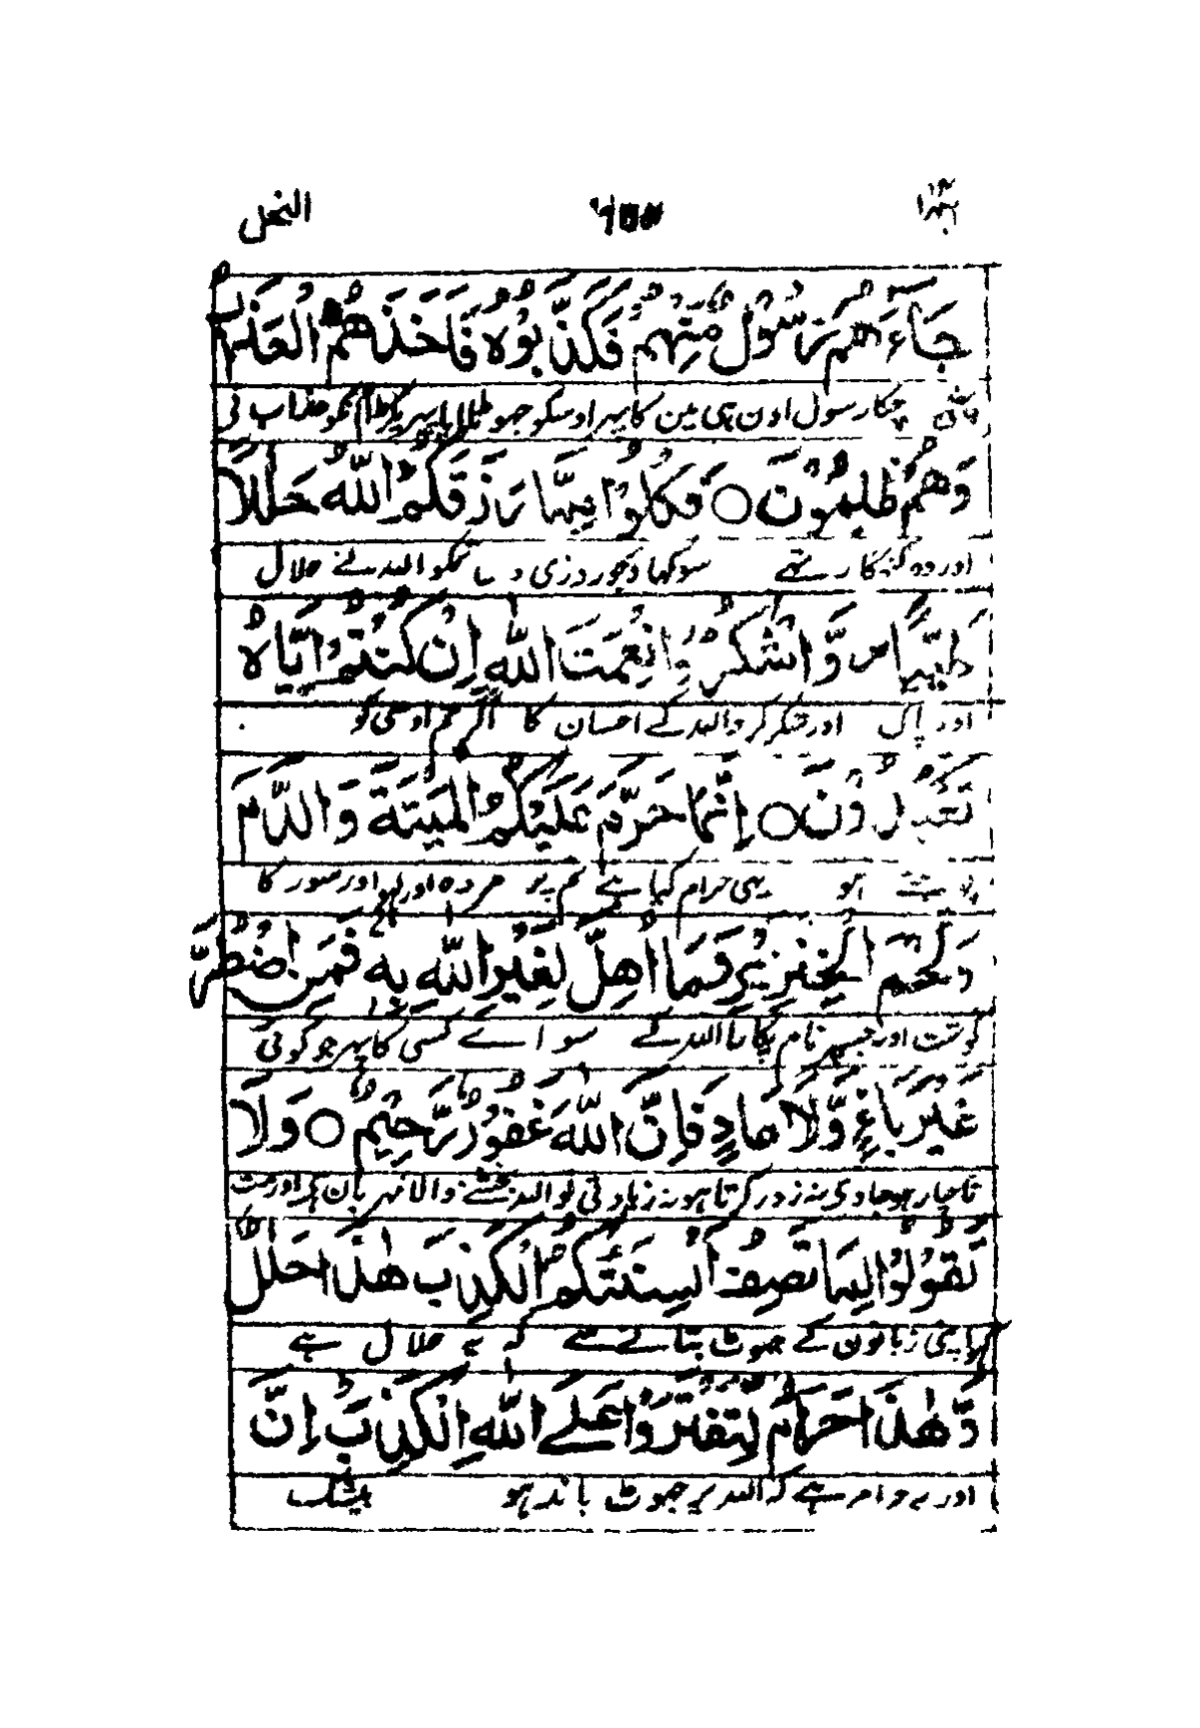 النحل
جَآءَهُمْ رَسُوْلٌ مِّنْهُمْ فَكَذَّبُوْهُ فَاَخَذَهُمُ الْعَذَابُ
رسول اون ہی مین کا پہر اوسکو عذاب نی
وَهُمْ ظٰلِمُوْنَ ○ فَكُلُوْا مِمَّا رَزَقَكُمُ اللّٰهُ حَلٰلًا
اور وہ گنہگار تہے سو کہاؤ جو روزی دی تمکو اللہ نے حلال
طَيِّبًا وَّاشْكُرُوْا نِعْمَتَ اللّٰهِ اِنْ كُنْتُمْ اِيَّاهُ
اور پاک اور شکر کرو اللہ کے احسان کا اگر تم اوسی کو
تَعْبُدُوْنَ ○ اِنَّمَا حَرَّمَ عَلَيْكُمُ الْمَيْتَةَ وَالدَّمَ
ہو یہی حرام کیا ہے تم پر مردہ اور لہو اور سور کا
وَلَحْمَ الْخِنْزِيْرِ وَمَا اُهِلَّ لِغَيْرِ اللّٰهِ بِهٖ فَمَنِ اضْطُرَّ
گوشت اور جسپر نام پکارا اللہ کے سواے کسی کا پہر جو کوئی
غَيْرَ بَاغٍ وَّلَا عَادٍ فَاِنَّ اللّٰهَ غَفُوْرٌ رَّحِيْمٌ ○ وَلَا
ناچار ہو جاوی نہ زور کرتا ہو نہ زیادتی تو اللہ بخشنے والا مہربان ہے اور مت
تَقُوْلُوْا لِمَا تَصِفُ اَلْسِنَتُكُمُ الْكَذِبَ هٰذَا حَلٰلٌ
کہو اپنی زبانون کے جہوٹ بتانے سے کہ یہ حلال ہے
وَّهٰذَا حَرَامٌ لِّتَفْتَرُوْا عَلَے اللّٰهِ الْكَذِبَ اِنَّ
اور یہ حرام ہے کہ اللہ پر جہوٹ باندہو بیشک